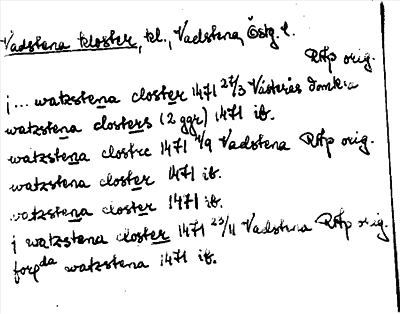 Vadstena kloster, kl., Vadstena, Östg. l.
RAp orig.
j... watzstena closter 1471 27/3 Västerås domk:a
watzstena closters (2 ggr) 1471 ib.
watzstena clostre 1471 4/9 Vadstena RAp orig.
watzstena closter 1471 ib.
watzstena closter 1471 ib.
j watzstena closter 1471 23/11 Vadstena RAp orig.
forᵈᵃ watzstena 1471 ib.